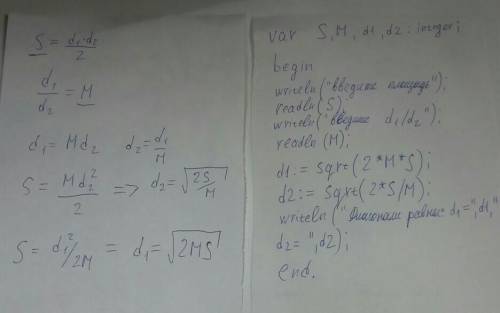 S = d₁·d₂/2
d₁/d₂ = M
d₁ = Md₂ d₂ = d₁/M
S = Md₂²/2 => d₂ = √(2S/M)
S = d₁²/2M = d₁ = √(2MS)
var S, M, d1, d2 : integer;
begin
writeln("введите площадь");
readln(S);
writeln("введите d1/d2");
readln(M);
d1:= sqrt(2*M*S);
d2:= sqrt(2*S/M);
writeln("Диагонали равны: d1=",d1,"
d2=",d2);
end.